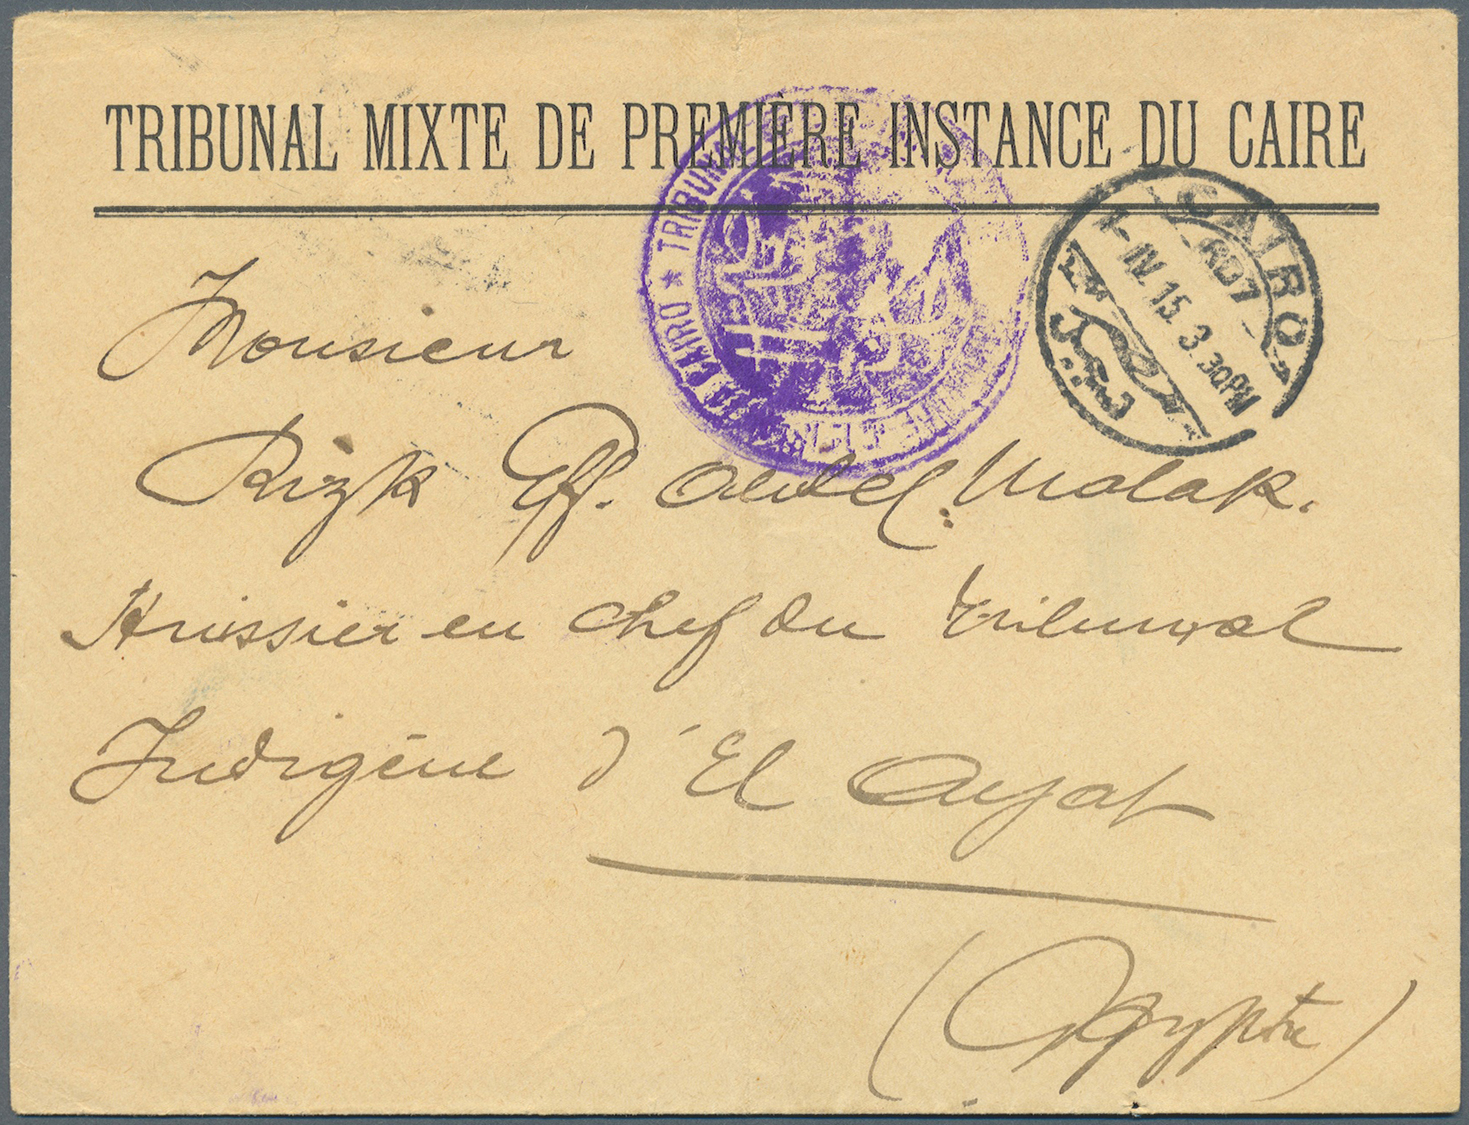 TRIBUNAL MIXTE DE PREMIÈRE INSTANCE DU CAIRE
CAIRO * TRIBUNAL
CAIRO
1-IV.15. 3.30PM
Monsieur
Rizk Eff. Abdel Malak.
Huissier en chef du tribunal
Indigène d'El Ayat
(Egypte)